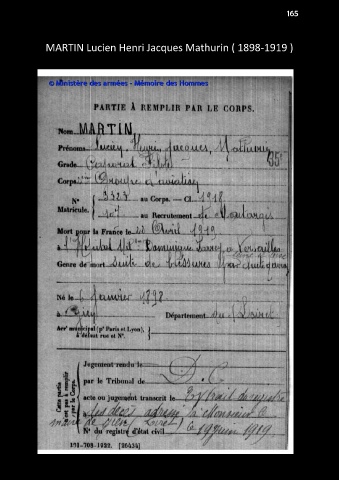 165
MARTIN Lucien Henri Jacques Mathurin ( 1898-1919 )
© Ministère des armées - Mémoire des Hommes
PARTIE À REMPLIR PAR LE CORPS.
Nom MARTIN
Prénoms Lucien, Henri, Jacques, Mathurin
Grade Caporal Pilote
Corps Groupe d'aviation
N° 3323 au Corps. — Cl. 1918
Matricule. au Recrutement de Montargis
Mort pour la France le Avril 1919
à l'Hôpital Dominique Larrey à Versailles
Genre de mort suite de blessures
Né le 6 Janvier 1898
à Département du Loiret
Arr¹ municipal (p¹ Paris et Lyon), à défaut rue et N°.
Cette partie n'est pas à remplir par le Corps.
Jugement rendu le
par le Tribunal de D. C.
acte ou jugement transcrit le Extrait du registre
des décès adressé à Monsieur le
maire de (Loiret)
N° du registre d'état civil le 19 juin 1919
131-708-1922. [26434]